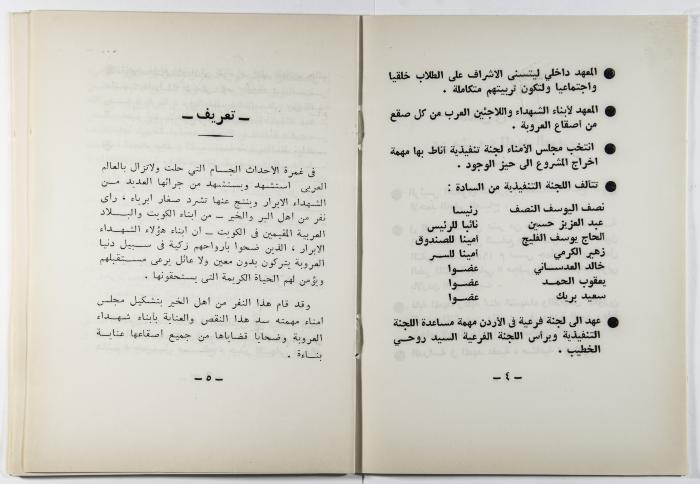 ● المعهد داخلي ليتسنى الاشراف على الطلاب خلقيا
واجتماعيا ولتكون تربيتهم متكاملة .
● المعهد لأبناء الشهداء واللاجئين العرب من كل صقع
من اصقاع العروبة .
● انتخب مجلس الأمناء لجنة تنفيذية أناط بها مهمة
اخراج المشروع الى حيز الوجود .
● تتالف اللجنة التنفيذية من السادة :
نصف اليوسف النصف رئيسا
عبد العزيز حسين نائبا للرئيس
الحاج يوسف الفليج أمينا للصندوق
زهير الكرمي أمينا للسر
خالد العدساني عضوا
يعقوب الحمد عضوا
سعيد بريك عضوا
● عهد الى لجنة فرعية في الأردن مهمة مساعدة اللجنة
التنفيذية ويرأس اللجنة الفرعية السيد روحي
الخطيب .
– ٤ –
– تعريف –
في غمرة الاحداث الجسام التي حلت ولاتزال بالعالم
العربي استشهد ويستشهد من جرائها العديد من
الشهداء الابرار وينتج عنها تشرد صغار ابرياء ، راى
نفر من اهل البر والخير – من ابناء الكويت والبلاد
العربية المقيمين في الكويت – ان ابناء هؤلاء الشهداء
الابرار ، الذين ضحوا بارواحهم زكية في سبيل دنيا
العروبة يتركون بدون معين ولا عائل يرعى مستقبلهم
ويؤمن لهم الحياة الكريمة التي يستحقونها .
وقد قام هذا النفر من اهل الخير بتشكيل مجلس
امناء مهمته سد هذا النقص والعناية بابناء شهداء
العروبة وضحايا قضاياها من جميع اصقاعها عناية
بناءة .
– ٥ –